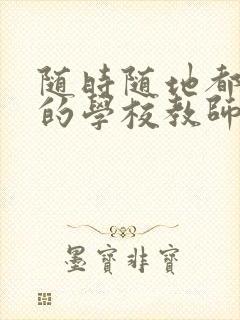 随時随地都
的學校教師
墨寶非寶